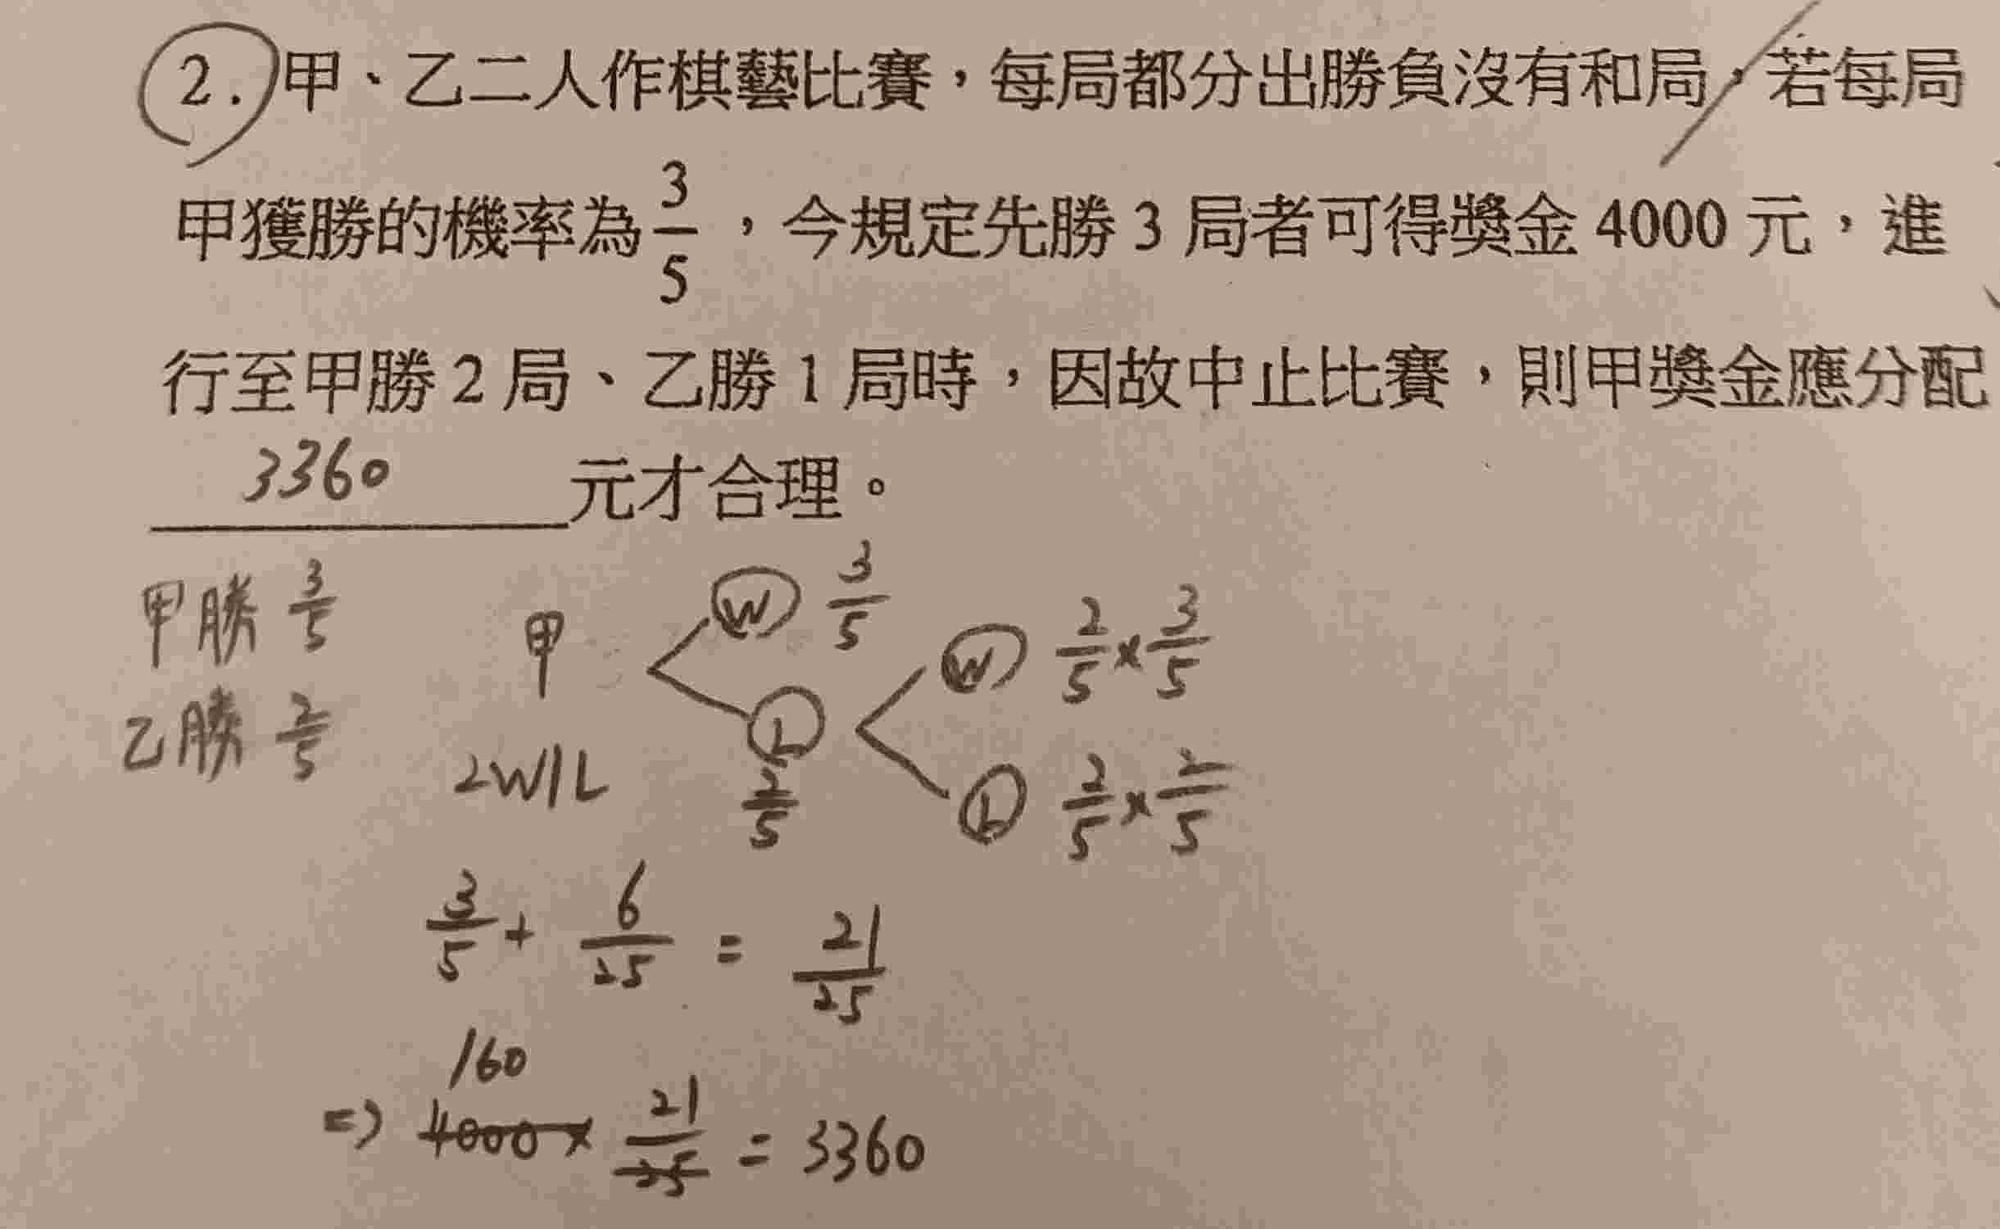 2. 甲、乙二人作棋藝比賽，每局都分出勝負沒有和局，若每局
甲獲勝的機率為 3/5，今規定先勝 3 局者可得獎金 4000 元，進
行至甲勝 2 局、乙勝 1 局時，因故中止比賽，則甲獎金應分配
3360 元才合理。
甲勝 3/5
乙勝 2/5
甲
2W1L
W 3/5
L 2/5
W 2/5 × 3/5
L 2/5 × 2/5
3/5 + 6/25 = 21/25
160
⇒ 4000 × 21/25 = 3360